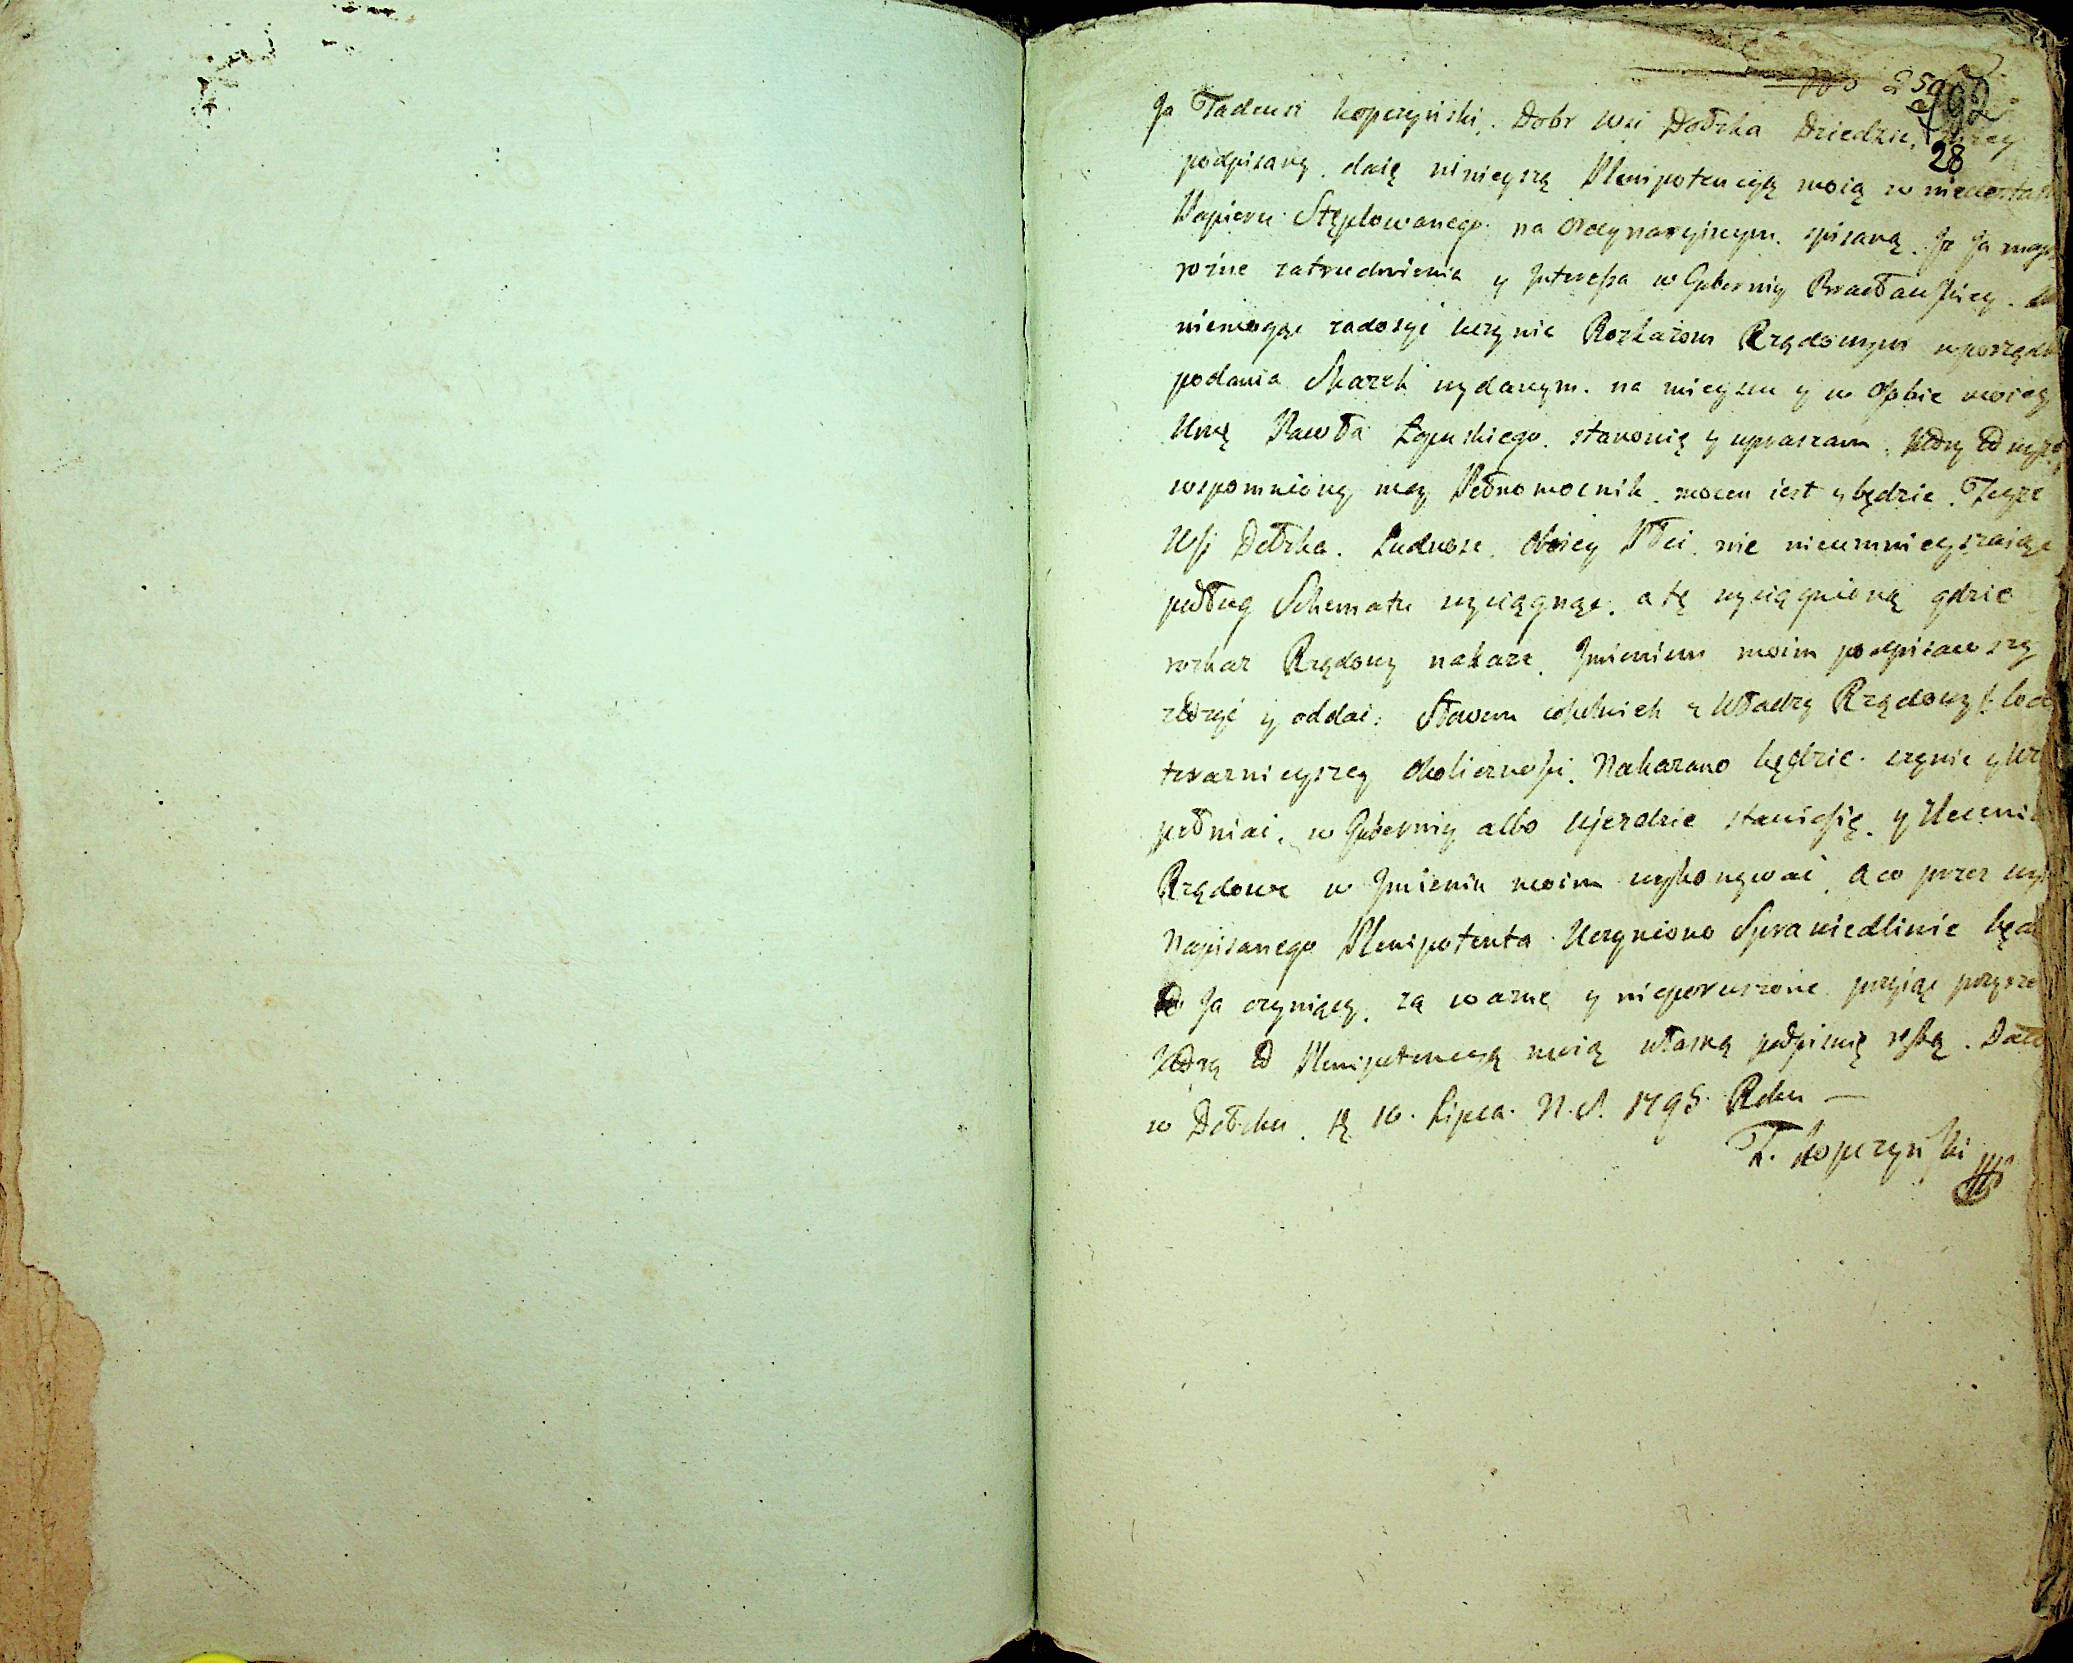 No 250
192
28
Ja Tadeusz Kopczyński. Dobr Wsi Dołzka Dziedzic,
podpisany. daię ninieyszą Plenipotencyą moią w niedostatk
Papieru Stęplowanego na Ordynaryinym. spisaną. Jz Ja maią
rożne zatrudnienia y Jnteressa w Gubernij Bracławskiey.
niemogąc zadosyć uczynić Rozkazom Rządowym wporządk
podania Skazek wydanym. na mieyscu y w Osobie moiey
Umę Pawła Łopuskiego. stanowię y upraszam. Ktory to wyżey
wspomniony moy Pełnomocnik. mocen iest y będzie. Teyże
Wsi Dołzka. Ludnosc. Oboiey Płci. nic nieumnieyszaiąc
podług Schematu wyciągnąć. a tę wyciągnioną gdzie
rozkaz Rządowy nakaze. Jmieniem moim podpisawszy
złożyć y oddać: Słowem cokolwiek z Władzy Rządowey
Okolicznosci. Nakazano będzie. czynić y
pełniać. w Gubernij albo Ujezdzie stawićsię. y
Rządowe w Jmieniu moim wykonywać. a co przez wyż
Napisanego Plenipotenta Uczyniono Sprawiedliwie będ
to Ja czyniący. za wazne y nieporuszone przyiąć przyrze
Ktorą to Plenipotencyą moią własną podpisuię ręką. Dat
w Dołzku. D. 10. Lipca. N. S. 1795. Roku —
T. Kopczyński